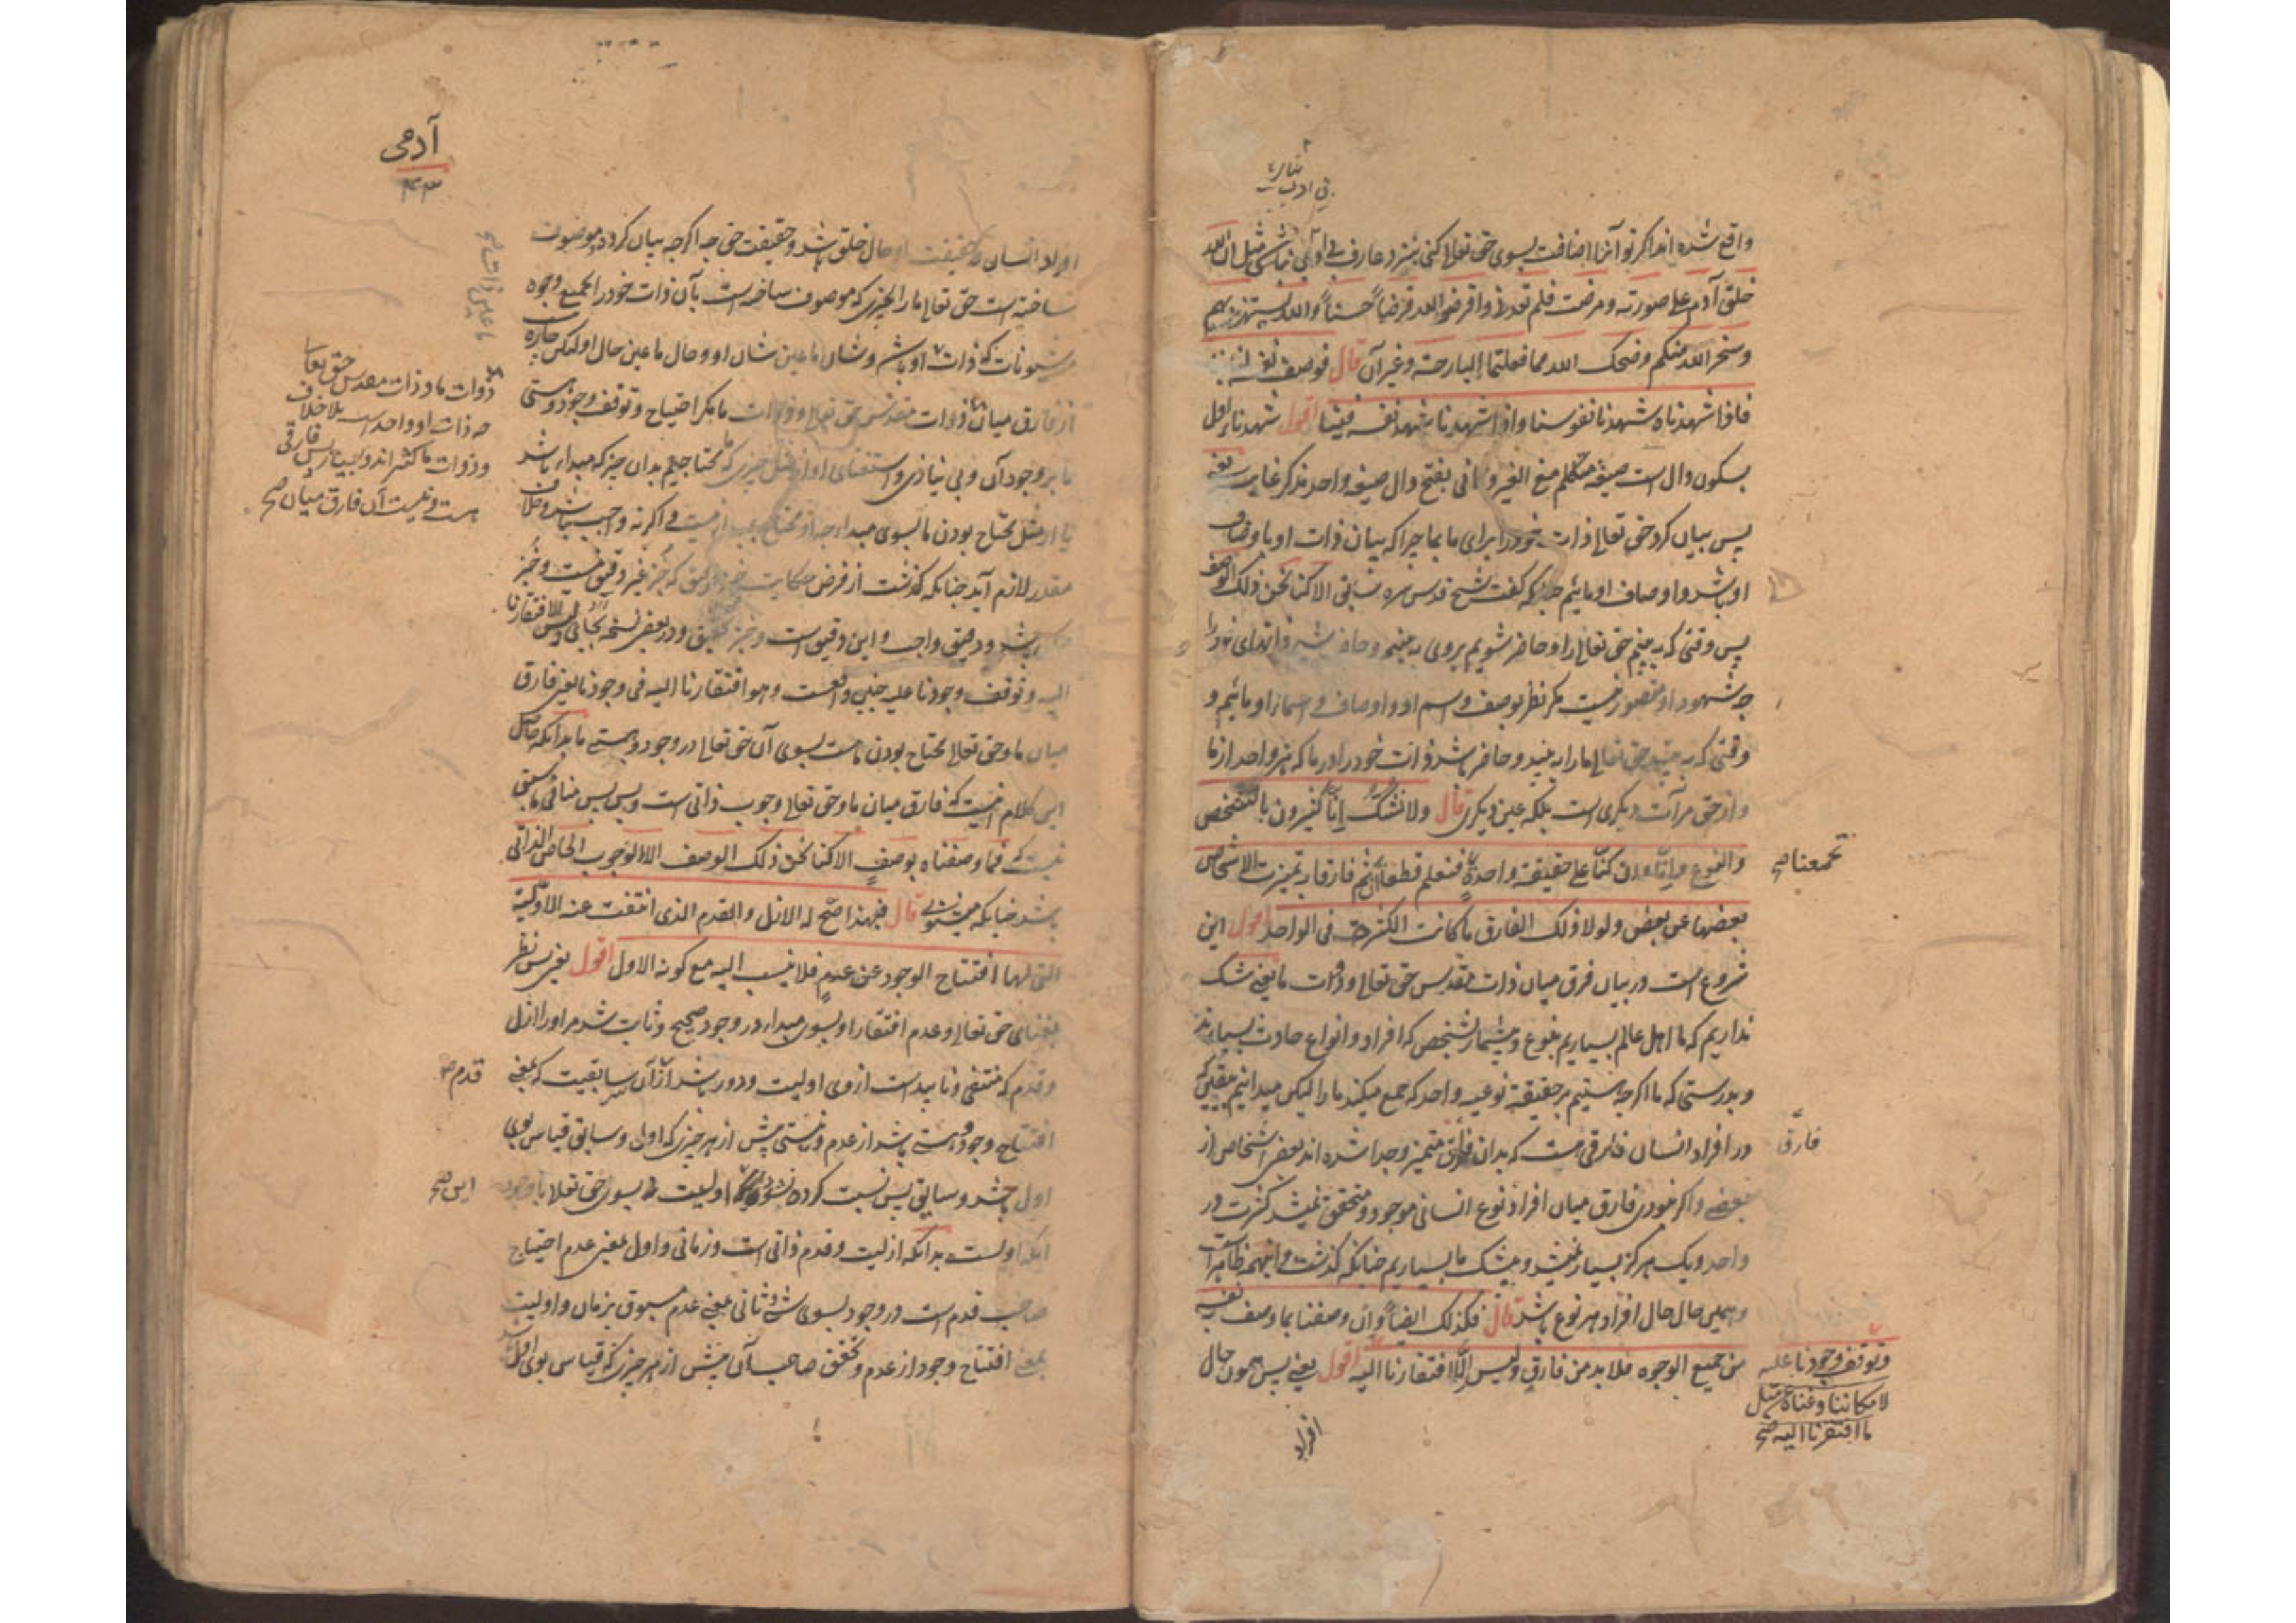 واقع شده اند اگر تو آنرا اضافت بسوی حق تعالی کنی نزد عارف بی ادبی نباشی مثل ان الله
خلق آدم علی صورته و مرضت فلم تعدنی و اقرضوا الله قرضاً حسناً و الله یستهزئ بهم
و سخر الله منکم و ضحک الله مما فعلتما البارحة و غیر آن قال فوصف نفسه لنا بنا
فاذا شهدناه شهدنا نفوسنا و اذا شهدنا شهد نفسه فینا اقول شهدنا اول
بسکون دال است صیغه متکلم مع الغیر و ثانی بفتح دال صیغه واحد مذکر غایب یعنی
پس بیان کرد حق تعالی ذات خود را برای ما بما چرا که بیان ذات او باوصاف
او باشد و اوصاف او مائیم چنانکه گفت شیخ قدس سره سابق الا کنا نحن ذلک الوصف
پس وقتی که به بینیم حق تعالی را و حاضر شویم بروی به بینیم و حاضر شویم ذاتهای خود را
چه شهود او متصور نیست مگر نظر بوصف و اسم او و اوصاف و اسماء او مائیم و
وقتی که به بیند حق تعالی ما را به بیند و حاضر باشد ذات خود را در ما که هر واحد از ما
و از حق مرآت دیگری است بلکه عین دیگری قال و لا نشک انا کثیرون بالشخص
و النوع و انا و ان کنا علی حقیقة واحدة فنعلم قطعاً ان ثم فارقا به تمیزت الاشخاص
تجمعنا صح
بعضها عن بعض و لولا ذلک الفارق ما کانت الکثرة فی الواحد اقول این
شروع است در بیان فرق میان ذات مقدس حق تعالی و ذات ما یعنی شک
نداریم که ما اهل عالم بسیاریم بنوع و بیشمار بشخص که افراد و انواع حادث بسیارند
و بدرستی که ما اگرچه هستیم بر حقیقة نوعیه واحد که جمع میکند ما را لیکن میدانیم بیقین که
در افراد انسان فارقی هست که بدان فارق متمیز و جدا شده اند بعض اشخاص از
فارق
بعضے و اگر نبودی فارق میان افراد نوع انسانی موجود و متحقق نمیشد کثرت در
واحد و یک هرگز بسیار نمیشد و بیشک ما بسیاریم چنانکه گذشت و اینهمه ظاهر است
و همین حال حال افراد هر نوع باشد قال فکذلک ایضاً و ان وصفنا بما وصف نفسه
من جمیع الوجوه فلا بد من فارق و لیس الا افتقارنا الیه اقول یعنی پس همون حال
و توقف وجودنا علیه
لامکاننا و غناه عن مثل
ما افتقرنا الیه صح
افراد
آدمی
۴۳
افراد انسان و حقیقت او حال خلق باشد و حقیقت حق چه اگرچه بیان کرده و موصوف
ساخته است حق تعالی ما را بچیزی که موصوف ساخته است بآن ذات خود را بجمیع وجوه
و شئونات که ذات او باشد و شان ما عین شان او و حال ما عین حال او لیکن چاره
از فارق میان ذات مقدس حق تعالی و ذات ما مگر احتیاج و توقف وجود و هستی
ذوات ما و ذات مقدس حق تعا
چه ذات او واحد است بلا خلاف
و ذوات ما کثیر اند و بسیار پس فارقی
هست و نیست آن فارق میان صح
ما بر وجود آن و بی نیازی و استغنای او از مثل چیزی که ما محتاجیم بدان چیز که مبداء باشد
یا از مثل محتاج بودن ما بسوی مبداء چه او محتاج بمبداء نیست و اگر نه واجب نباشد و خلاف
مقدر لازم آید چنانکه گذشت از فرض
الیه و توقف وجودنا علیه و هو افتقارنا الیه فی وجودنا یعنی فارق
میان ما و حق تعالی محتاج بودن ماست بسوی آن حق تعالی در وجود و هستی ما بدانکه حاصل
این کلام اینست که فارق میان ما و حق تعالی وجوب ذاتی است و بس پس منافی ما سبق
نیست که فما وصفناه بوصف الا کنا نحن ذلک الوصف الا الوجوب الخاص الذاتی
باشد چنانکه میشنوی قال فبهذا صح له الازل و القدم الذی انتفت عنه الاولیة
التی لها افتتاح الوجود عن عدم فلا ینسب الیه مع کونه الاول اقول یعنی پس نظر
بغنای حق تعالی و عدم افتقار او بسوی مبداء در وجود صحیح و ثابت شد مر او را ازل
و قدم که منتفی و ناپید است از وی اولیت و دور باشد از آن سابقیت که بمعنی
قدم صح
افتتاح وجود و هستی باشد از عدم و نیستی پیش از هر چیزی که اول و سابق قیاس بوی
اول باشد و سابق پس نسبت کرده نشود اولیت بسوی حق تعالی با وجود
این صح
آنکه اول است بدانکه ازلیت و قدم ذاتی است و زمانی و اول بمعنی عدم احتیاج
صاحب قدم است در وجود بسوی شئ و ثانی بمعنی عدم مسبوق بزمان و اولیت
بمعنی افتتاح وجود از عدم و تحقق صاحب آن پیش از هر چیزی که قیاس بوی اول